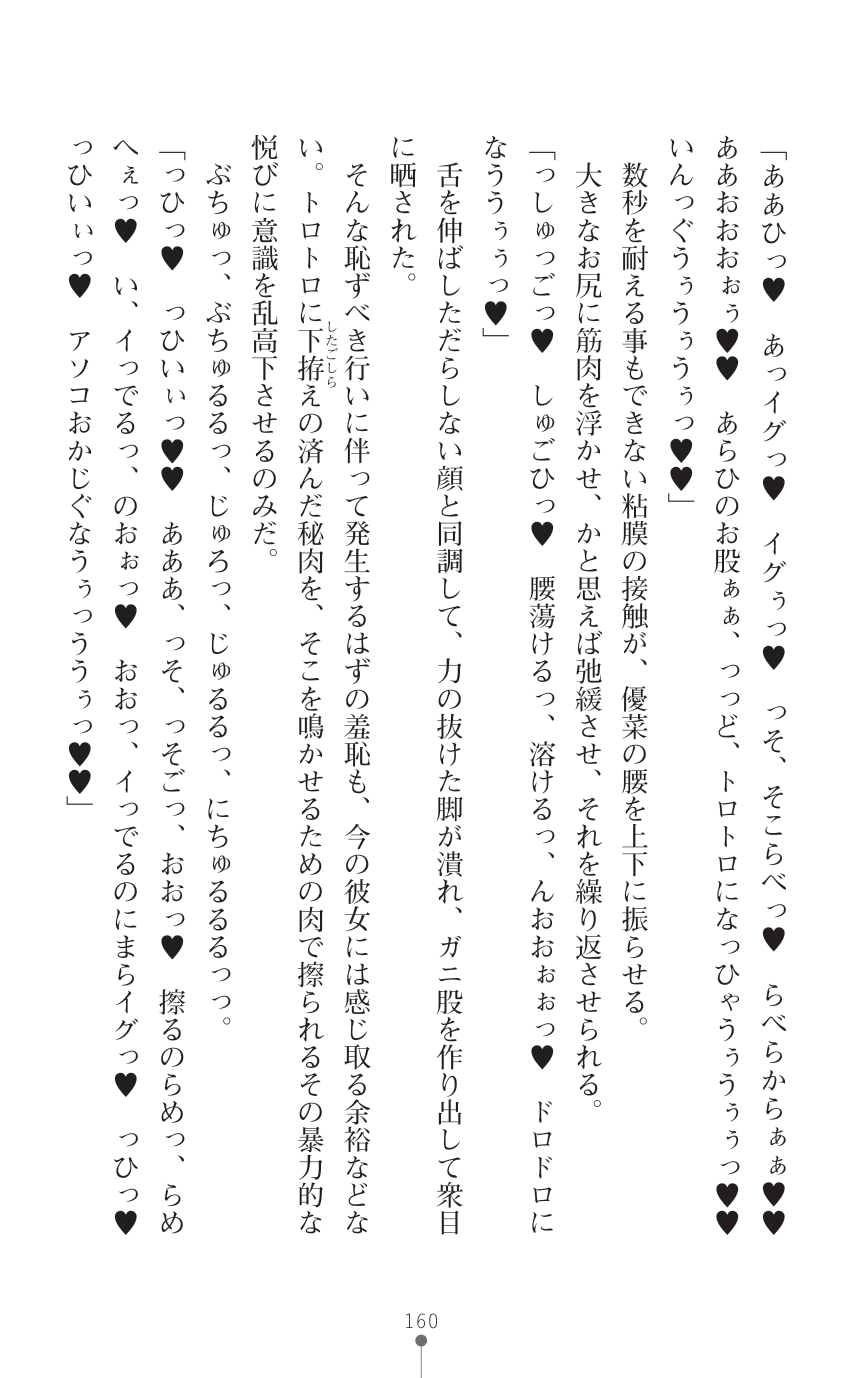 「ああひっ♥　あっイグっ♥　イグぅっ♥　っそ、そこらべっ♥　らべらからぁぁ♥♥
ああおおおぉぅ♥♥　あらひのお股ぁぁ、っっど、トロトロになっひゃうぅうぅぅっ♥♥
いんっぐうぅうぅうぅっ♥♥」
数秒を耐える事もできない粘膜の接触が、優菜の腰を上下に振らせる。
大きなお尻に筋肉を浮かせ、かと思えば弛緩させ、それを繰り返させられる。
「っしゅっごっ♥　しゅごひっ♥　腰蕩けるっ、溶けるっ、んおおぉぉっ♥　ドロドロに
なううぅぅっ♥」
舌を伸ばしただらしない顔と同調して、力の抜けた脚が潰れ、ガニ股を作り出して衆目
に晒された。
そんな恥ずべき行いに伴って発生するはずの羞恥も、今の彼女には感じ取る余裕などな
い。トロトロに下拵えの済んだ秘肉を、そこを鳴かせるための肉で擦られるその暴力的な
したごしら
悦びに意識を乱高下させるのみだ。
ぶちゅっ、ぶちゅるるっ、じゅろっ、じゅるるっ、にちゅるるるっっ。
「っひっ♥　っひいぃっ♥♥　あああ、っそ、っそごっ、おおっ♥　擦るのらめっ、らめ
へぇっ♥　い、イっでるっ、のおぉっ♥　おおっ、イっでるのにまらイグっ♥　っひっ♥
っひいぃっ♥　アソコおかじぐなうぅっううぅっ♥♥」
160